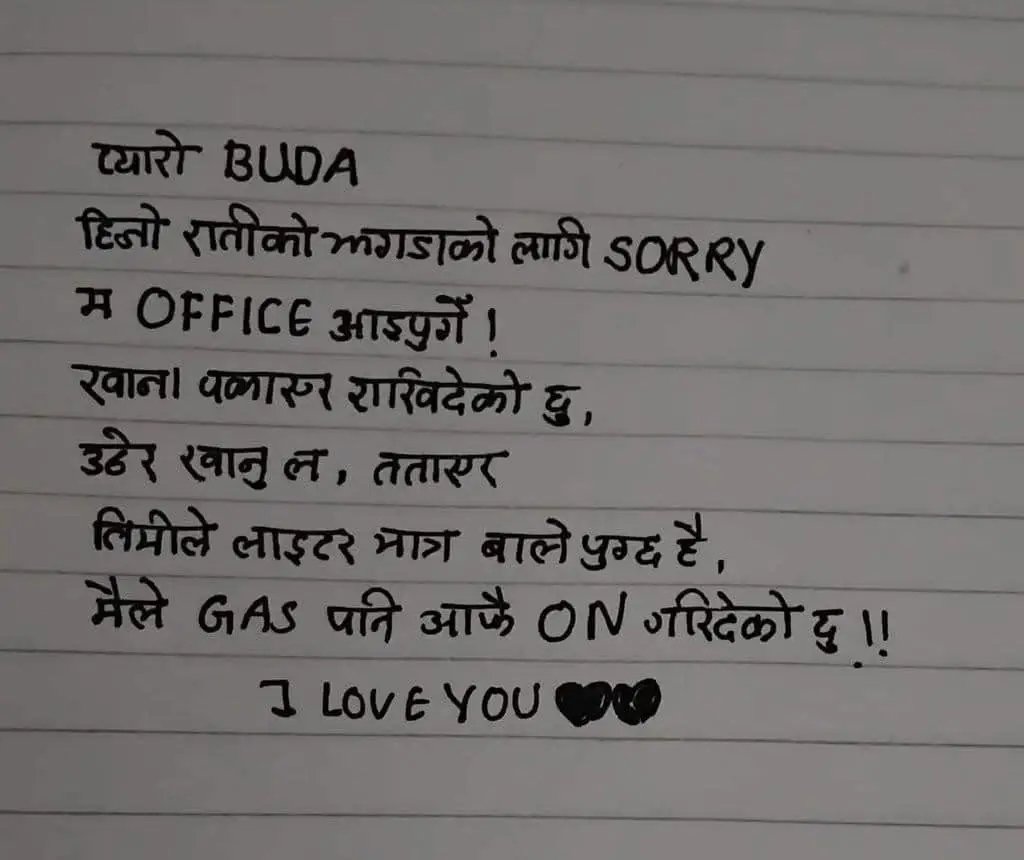 प्यारो BUDA
हिजो रातीको झगडाको लागि SORRY
म OFFICE आइपुगेँ !
खाना पकाएर राखिदेको छु,
उठेर खानु ल, तताएर
तिमीले लाइटर मात्र बाले पुग्छ है,
मैले GAS पनि आफै ON गरिदेको छु !!
I LOVE YOU 🖤🖤